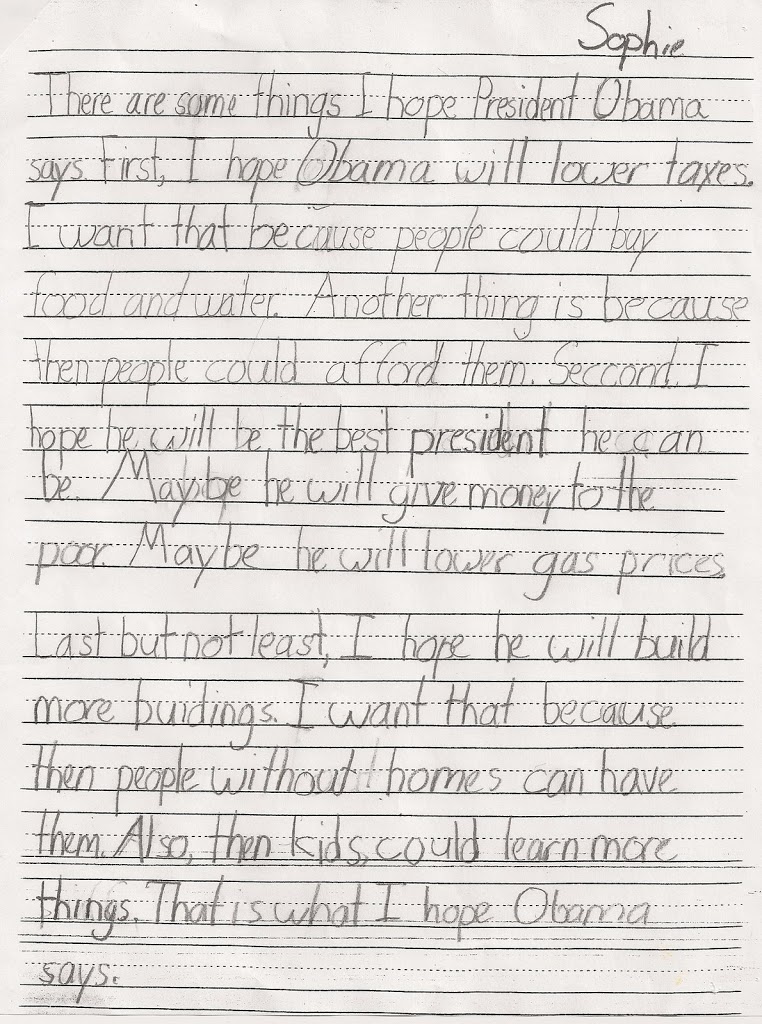 Sophie
There are some things I hope President Obama
says. First, I hope Obama will lower taxes.
I want that because people could buy
food and water. Another thing is because
then people could afford them. Seccond, I
hope he will be the best president he can
be. Maybe he will give money to the
poor. Maybe he will lower gas prices.
Last but not least, I hope he will build
more buidings. I want that because
then people without homes can have
them. Also, then kids, could learn more
things. That is what I hope Obama
says.